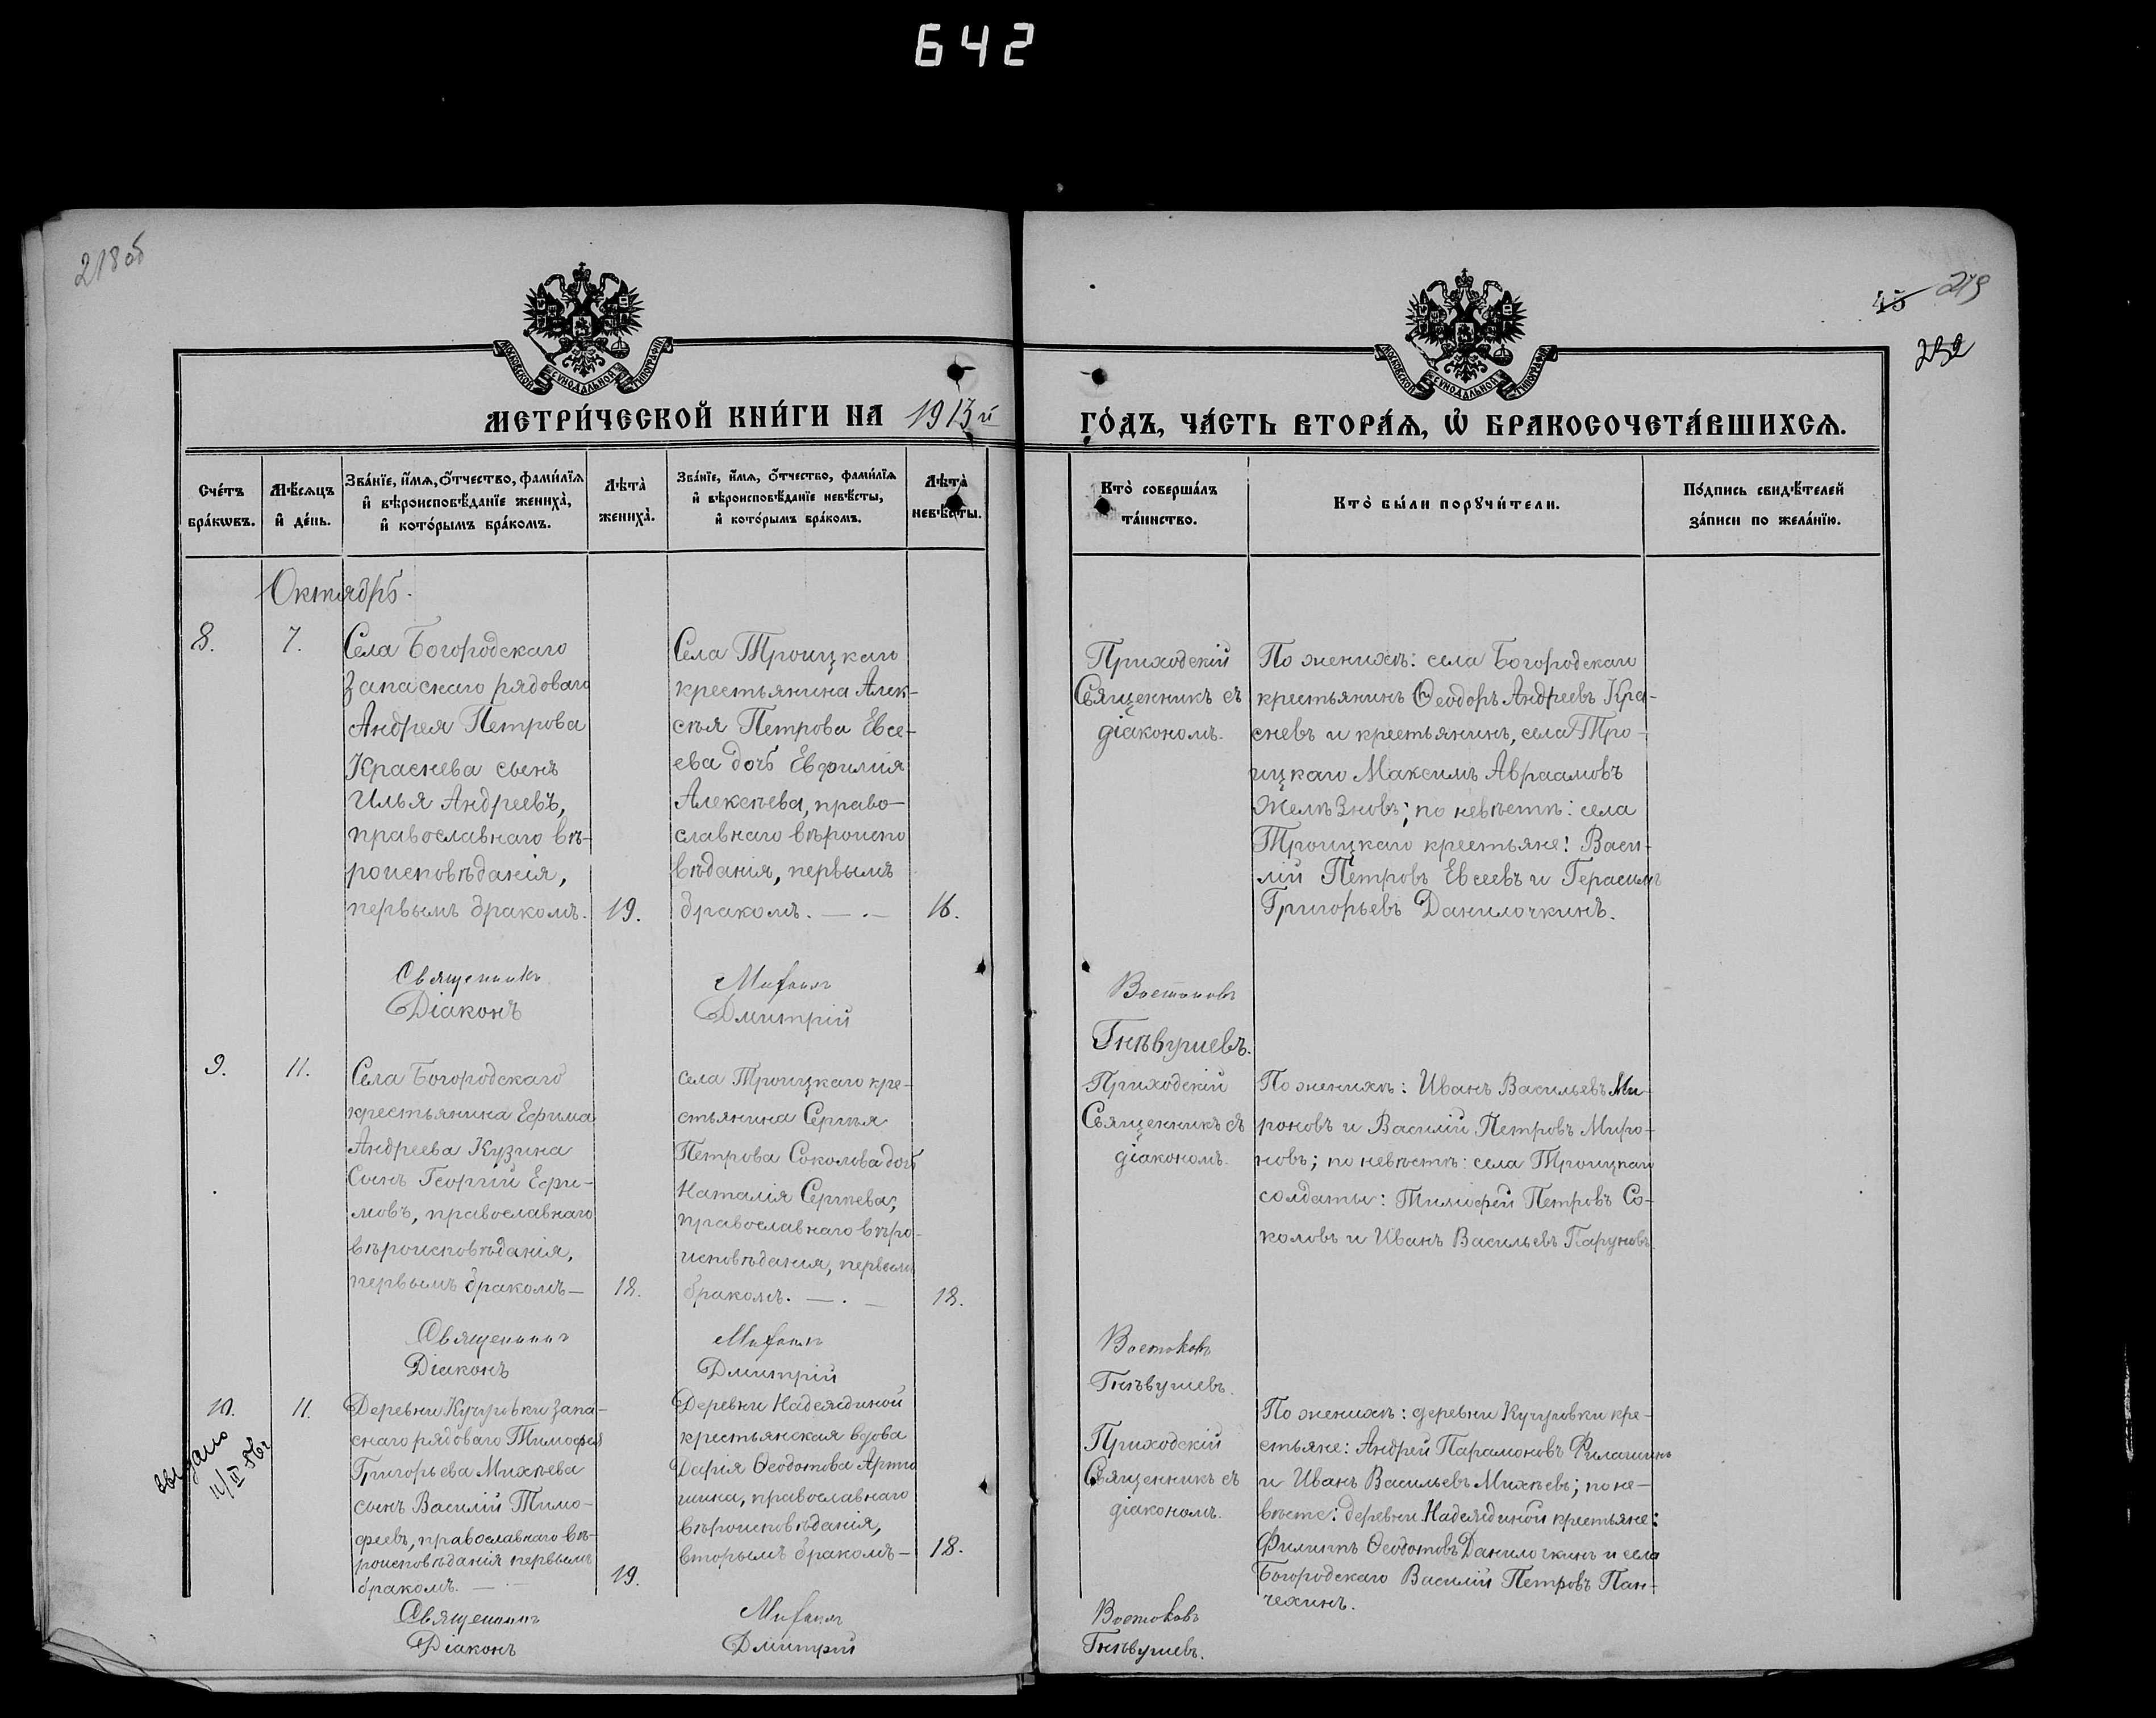 642
218об
45 219
232
МОСКОВСКОЙ СѴНОДАЛЬНОЙ ТИПОГРАФІИ
МОСКОВСКОЙ СѴНОДАЛЬНОЙ ТИПОГРАФІИ
МЕТРИ́ЧЕСКОЙ КНИ́ГИ НА 1913й ГО́ДЪ, ЧА́СТЬ ВТОРА́Ѧ, Ѡ҆ БРАКОСОЧЕТА́ВШИХСѦ.
Сче́тъ
бра́кѡвъ.
Мѣ́сѧцъ
и҆ де́нь.
Зва́нїе, и҆́мѧ, ѻ҆́тчество, фами́лїѧ
и҆ вѣроисповѣ́данїе жениха̀,
и҆ кото́рымъ бра́комъ.
Лѣта̀
жениха̀.
Зва́нїе, и҆́мѧ, ѻ҆́тчество, фами́лїѧ
и҆ вѣроисповѣ́данїе невѣ́сты,
и҆ кото́рымъ бра́комъ.
Лѣта̀
невѣ́сты.
Кто̀ соверша́лъ
та́инство.
Кто̀ бы́ли порꙋчи́тели.
По́дпись свидѣ́телей
за́писи по жела́нїю.
Октябрь.
8.
7.
Села Богородскаго
запаснаго рядоваго
Андрея Петрова
Краснева сынъ
Илья Андреевъ,
православнаго вѣ-
роисповѣданія,
первымъ бракомъ.
19.
Села Троицкаго
крестьянина Алек-
сѣя Петрова Евсе-
ева дочь Евфимія
Алексѣева, право-
славнаго вѣроиспо
вѣданія, первымъ
бракомъ. — . —
16.
Приходскій
Священникъ съ
діакономъ.
По женихѣ: села Богородскаго
крестьянинъ Ѳеодоръ Андреевъ Кра-
сневъ и крестьянинъ, села Тро-
ицкаго Максимъ Авраамовъ
Желѣзновъ; по невѣстѣ: села
Троицкаго крестьяне: Васи-
лій Петровъ Евсеевъ и Герасимъ
Григорьевъ Данилочкинъ.
Священникъ Михаилъ Востоковъ
Діаконъ Дмитрій Гнѣвушевъ.
9.
11.
Села Богородскаго
крестьянина Ефима
Андреева Кузина
сынъ Георгій Ефи-
мовъ, православнаго
вѣроисповѣданія,
первымъ бракомъ—
18.
села Троицкаго кре-
стьянина Сергѣя
Петрова Соколова дочь
Наталія Сергѣева,
православнаго вѣро-
исповѣдания, первымъ
бракомъ. — . —
18.
Приходскій
Священникъ съ
діакономъ.
По женихѣ: Иванъ Васильевъ Ми-
роновъ и Василій Петровъ Миро-
новъ; по невѣстѣ: села Троицкаго
солдаты: Тимофей Петровъ Со-
коловъ и Иванъ Васильевъ Паруновъ.
Священникъ Михаилъ Востоковъ
Діаконъ Дмитрій Гнѣвушевъ.
10.
11.
выдано
11/IV 56г
Деревни Кучуровки запа-
снаго рядоваго Тимофея
Григорьева Михѣева
сынъ Василій Тимо-
феевъ, православнаго вѣ-
роисповѣданія первымъ
бракомъ. — . —
19.
Деревни Надеждиной
крестьянская вдова
Дарія Ѳеодотова Артю
шина, православнаго
вѣроисповѣданія,
вторымъ бракомъ—
18.
Приходскій
Священникъ съ
діакономъ.
По женихѣ: деревни Кучуровки кре-
стьяне: Андрей Парамоновъ Филашинъ
и Иванъ Васильевъ Михѣевъ; по не-
вѣсте: деревни Надеждиной крестьяне:
Филиппъ Ѳеодотовъ Данилочкинъ и села
Богородскаго Василій Петровъ Пан-
чехинъ.
Священникъ Михаилъ Востоковъ
Діаконъ Дмитрій Гнѣвушевъ.